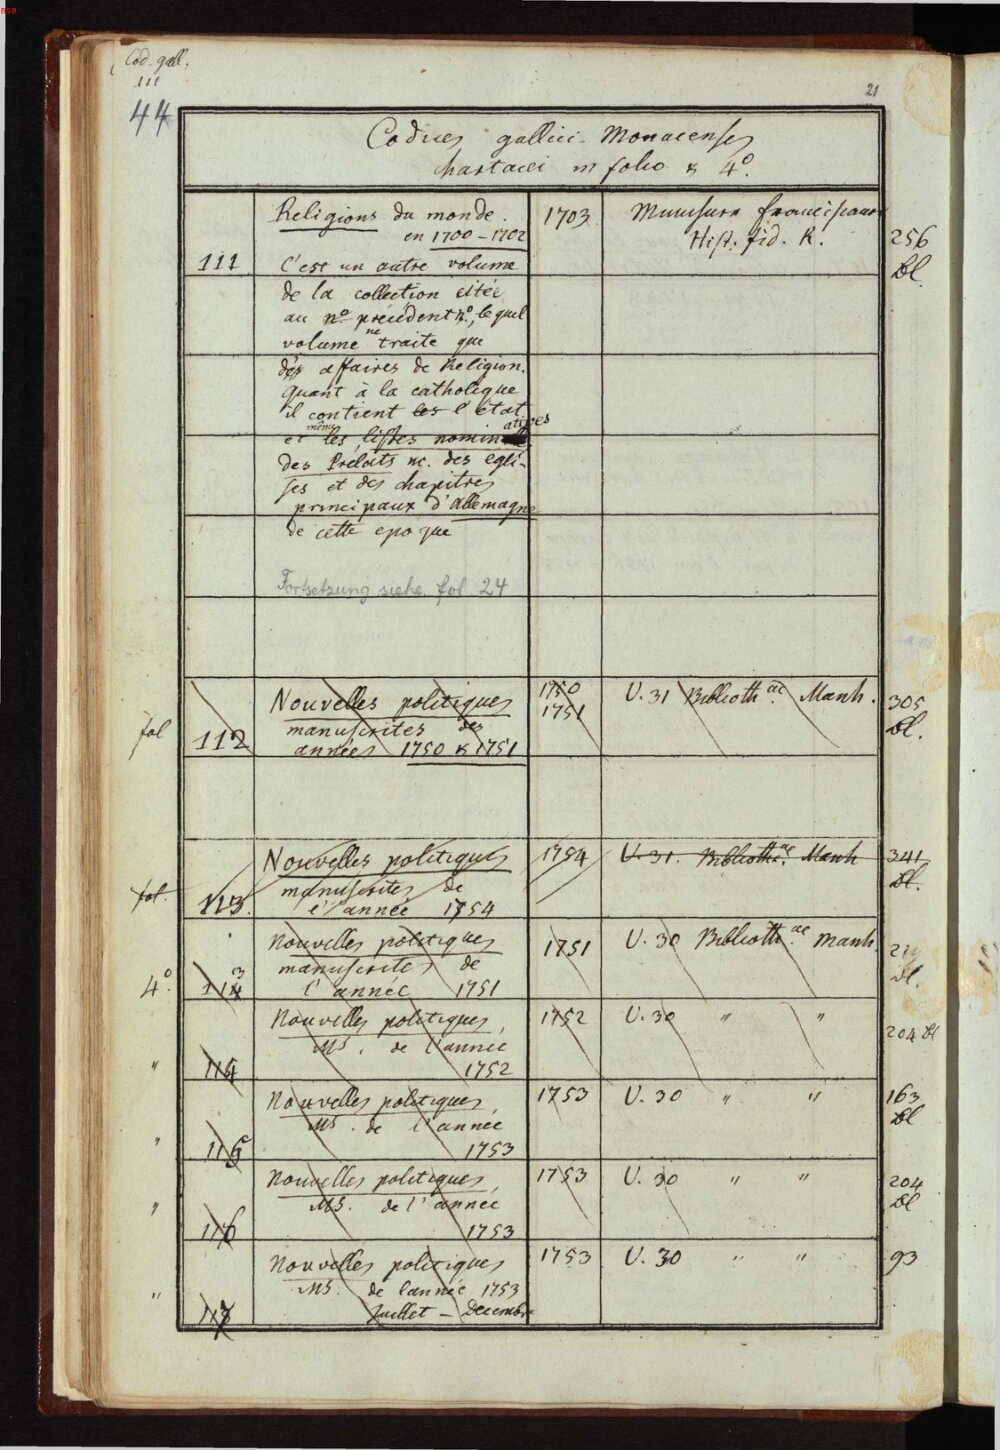 BSB
Cod. gall.
111
44
21
Codices gallici Monacenses
chartacei in folio & 4°.
Religions du monde.
en 1700-1702
1703
256
Bl.
Hist. fid. K.
111
C'est un autre volume
de la collection citée
au n° précédent, lequel
volume ne traite que
des affaires de Religion.
Quant à la catholique
il contient les l'état
et même les listes nominatives
des Prelats &c. des egli-
ses et des chapitres
principaux d'Allemagne
de cette epoque
Fortsetzung siehe fol. 24
fol
112
Nouvelles politiques
manuscrites des
années 1750 & 1751
1750
1751
U. 31 Biblioth.ae Manh.
305
Bl.
fol.
113.
Nouvelles politiques
manuscrites de
l'année 1754
1754
U. 31. Biblioth.ae Manh
341
Bl.
4°.
114 3
Nouvelles politiques
manuscrites de
l'année 1751
1751
U. 30 Biblioth.ae Manh.
Bl.
"
114
Nouvelles politiques,
MS. de l'année
1752
1752
U. 30 " "
204 Bl
"
115
Nouvelles politiques,
MS. de l'année
1753
1753
U. 30 " "
163
Bl
"
116
Nouvelles politiques,
MS. de l'année
1753
1753
U. 30 " "
204
Bl
"
117
Nouvelles politiques
MS. de l'année 1753
Juillet - Decembre
1753
U. 30 " "
93